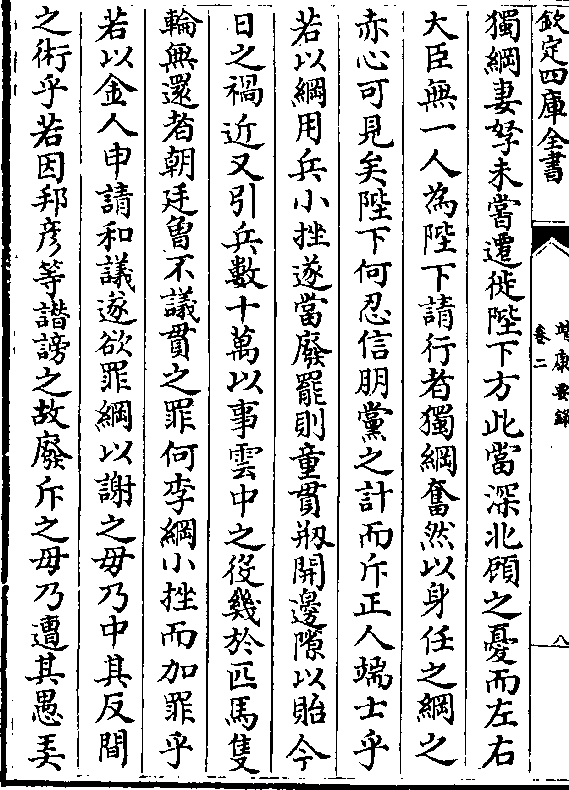 欽定四庫全書
靖康要録
卷二
八
獨綱妻孥未嘗遷徙陛下方此當深北顧之憂而左右
大臣無一人為陛下請行者獨綱奮然以身任之綱之
赤心可見矣陛下何忍信朋黨之計而斥正人端士乎
若以綱用兵小挫遂當廢罷則童貫剏開邊隙以貽今
日之禍近又引兵數十萬以事雲中之役幾於匹馬隻
輪無還者朝廷曾不議貫之罪何李綱小挫而加罪乎
若以金人申請和議遂欲罪綱以謝之毋乃中其反間
之術乎若因邦彦等譛謗之故廢斥之毋乃遭其愚美